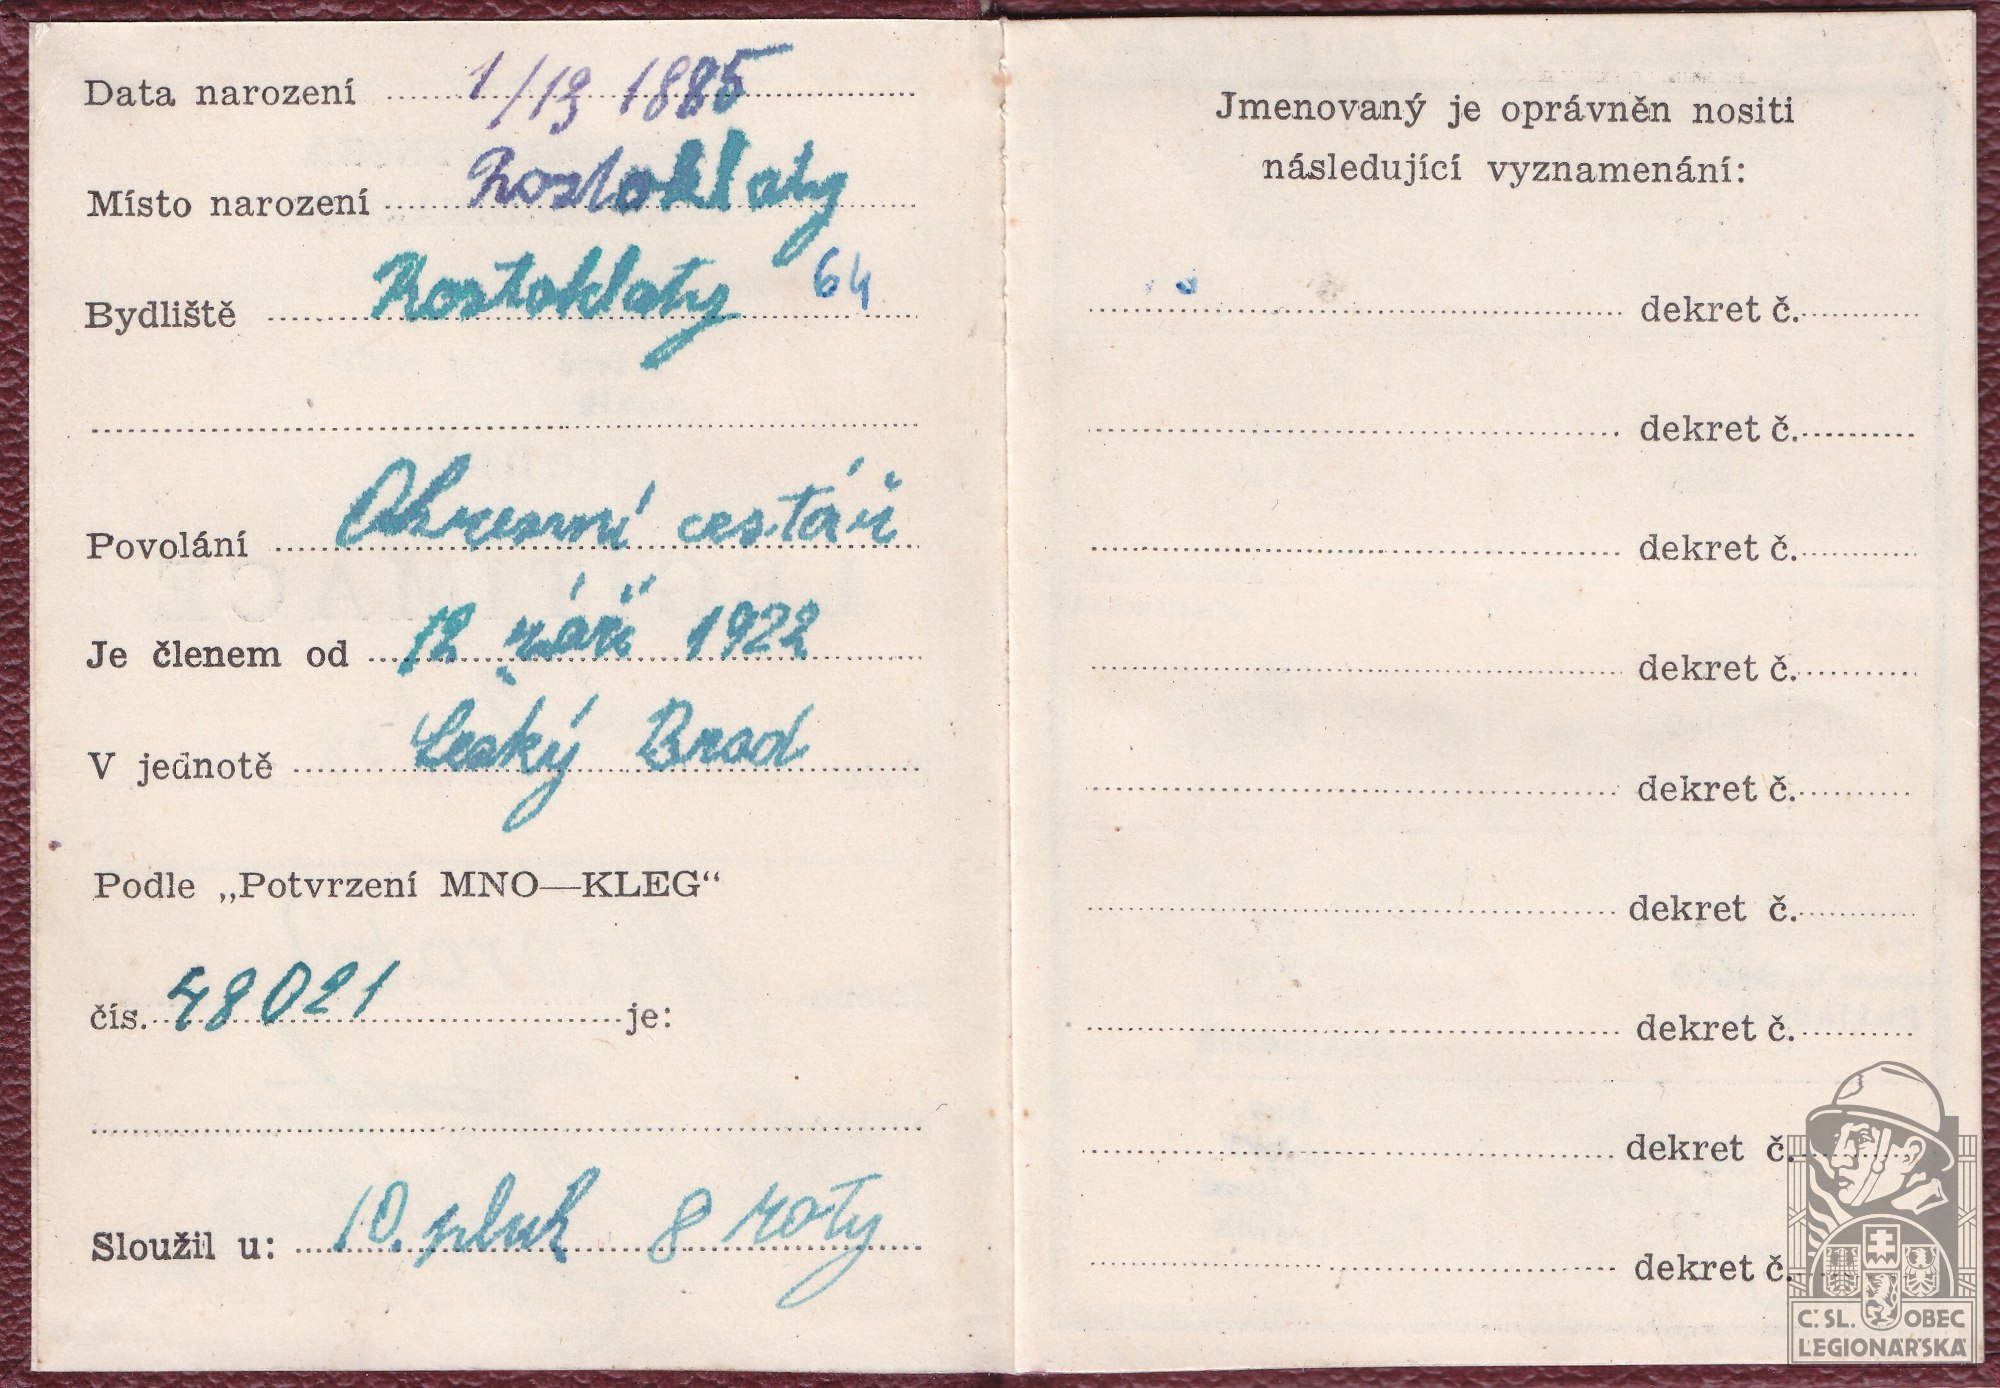 Data narození 1/13 1885
Místo narození Rostoklaty
Bydliště Rostoklaty 64
Povolání cestář
Je členem od 12 září 1922
V jednotě Český Brod
Podle „Potvrzení MNO—KLEG“
čís. 48021 je:
Sloužil u: 10. pluk 8 roty
Jmenovaný je oprávněn nositi
následující vyznamenání:
dekret č.
dekret č.
dekret č.
dekret č.
dekret č.
dekret č.
dekret č.
dekret č.
dekret č.
Č. SL. OBEC
LEGIONÁŘSKÁ